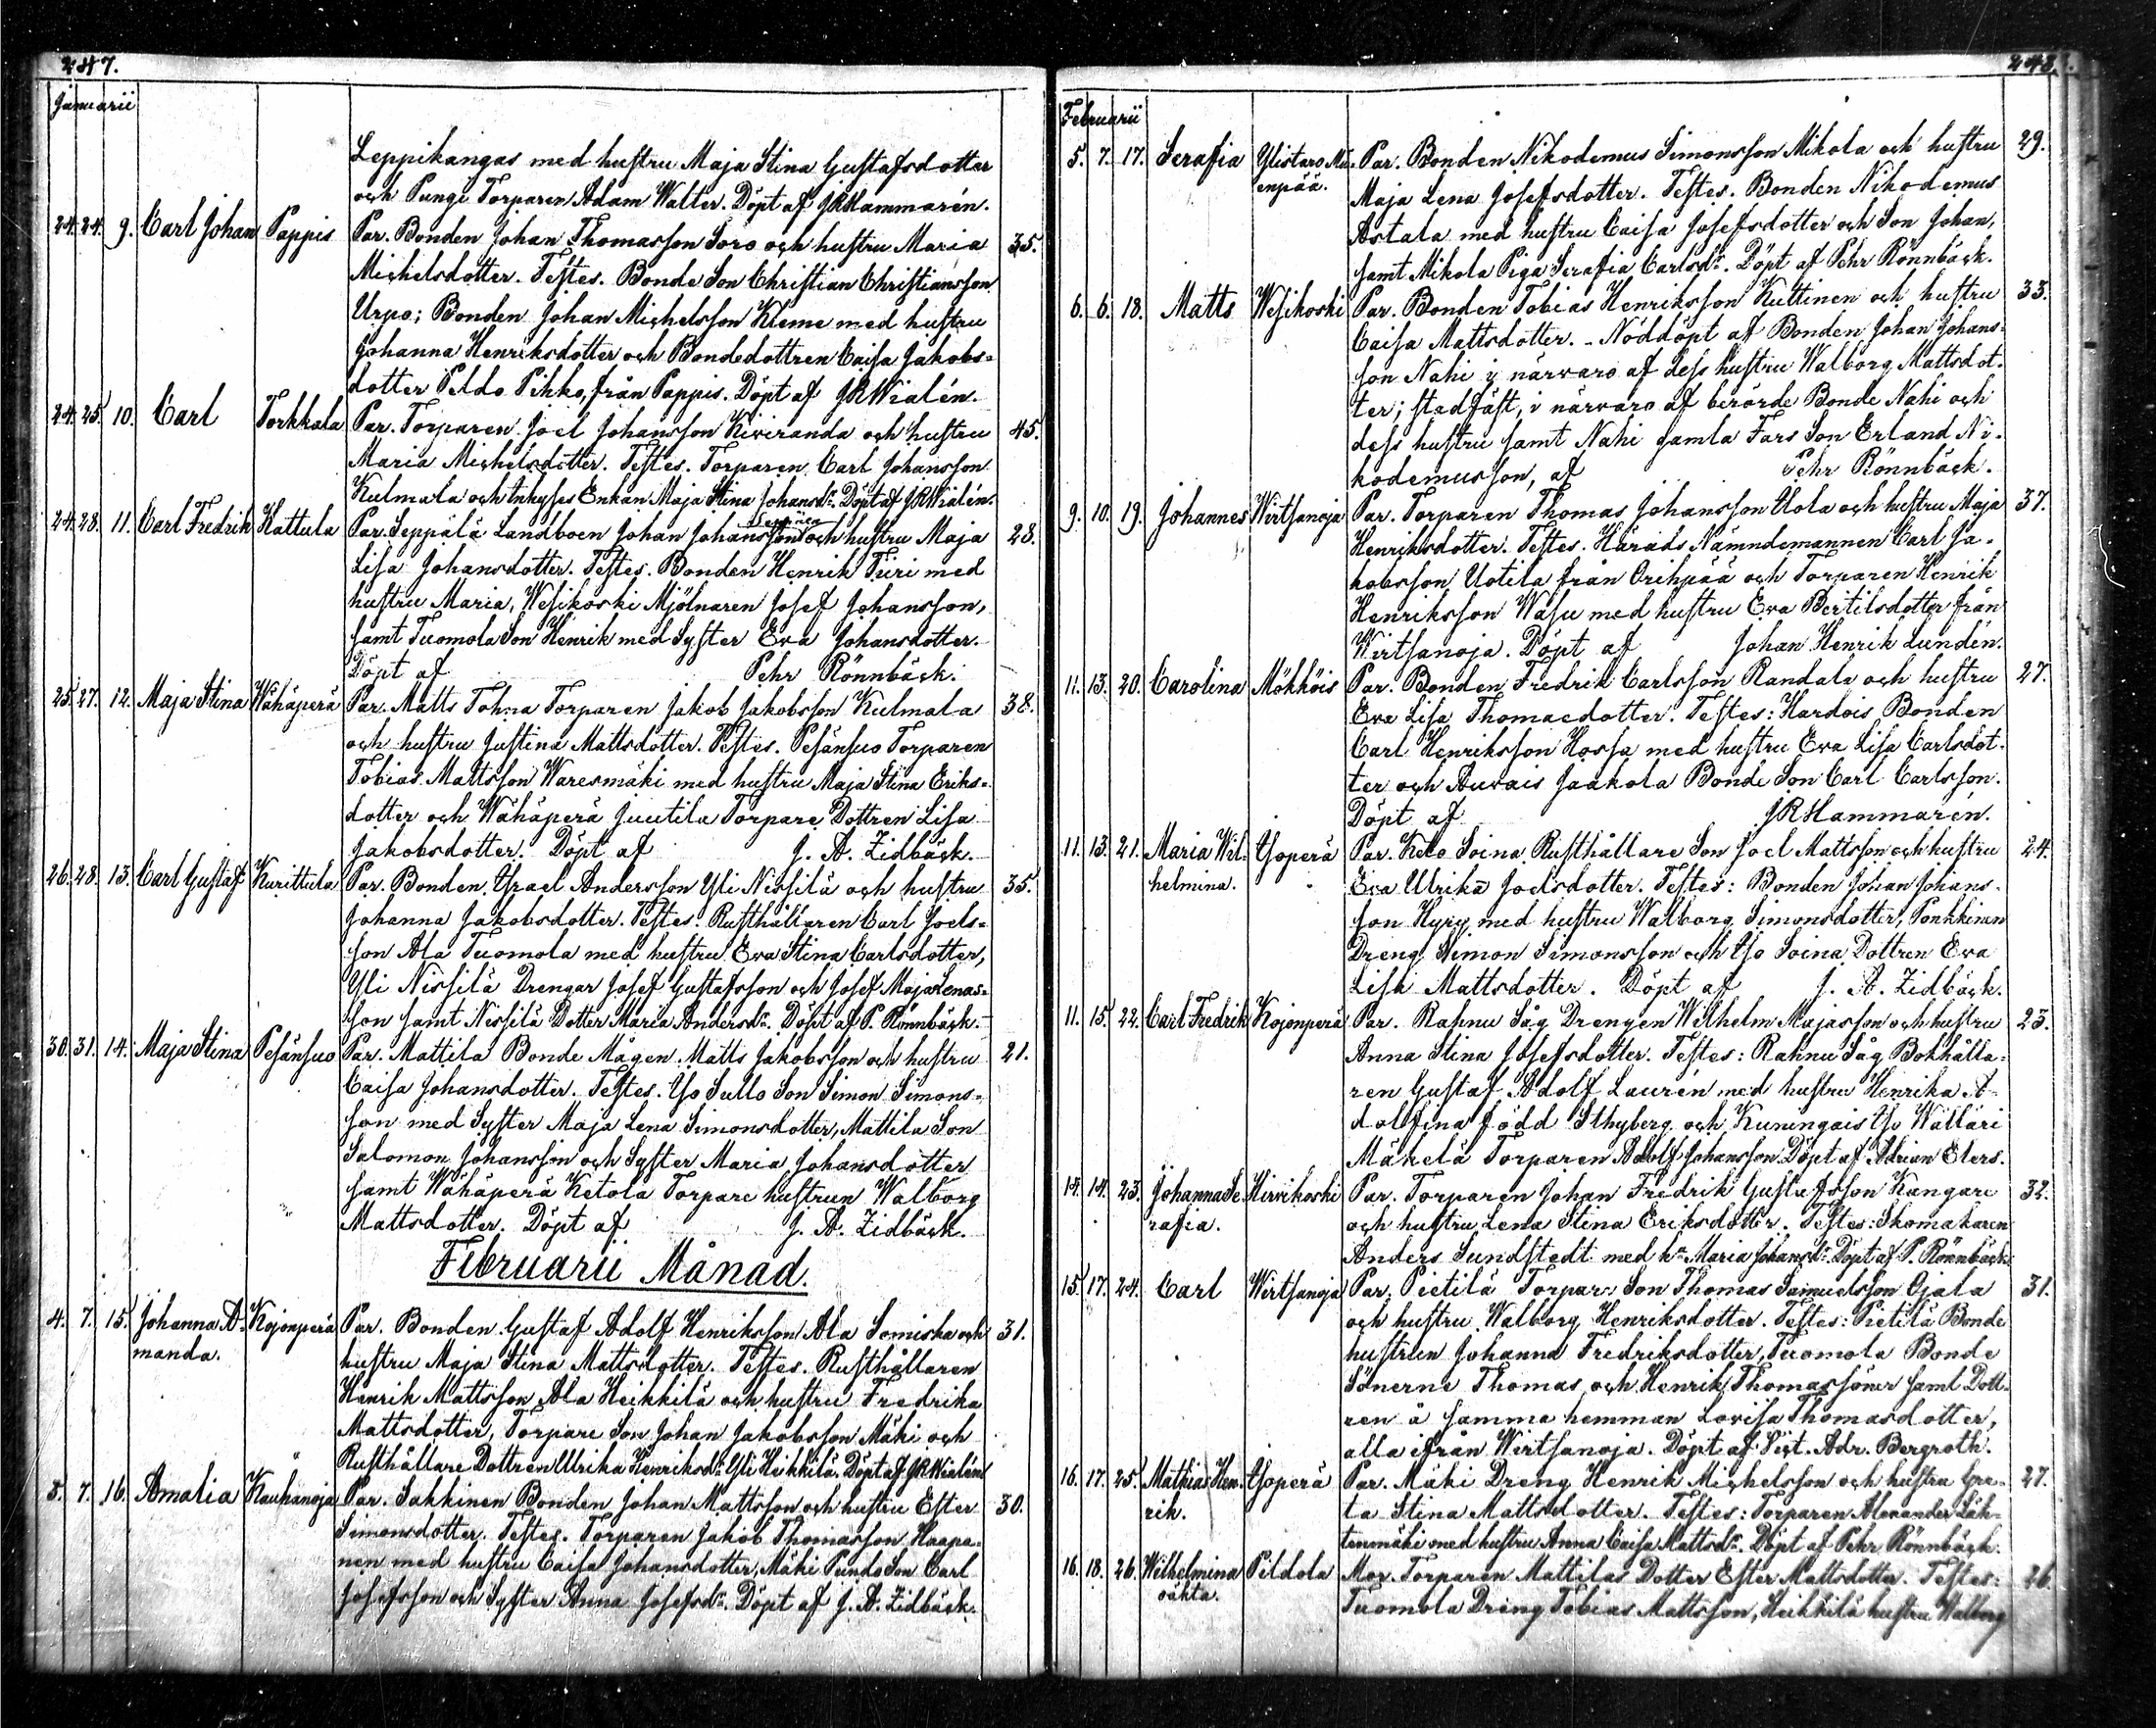 247.
Januarii
Leppikangas med hustru Maja Stina Gustafsdotter
och Pungi Torparen Adam Walter. Döpt af JRHammarén.
24. 24. 9. Carl Johan Pappis Par. Bonden Johan Thomasson Soro och hustru Maria 35.
Michelsdotter. Testes. Bonde Son Christian Christiansson
Urpo; Bonden Johan Michelsson Kleme med hustru
Johanna Henriksdotter och Bondedottren Caisa Jakobs=
dotter Peldo Pihko, från Pappis. Döpt af JRWialén.
24. 25. 10. Carl Torkkala Par. Torparen Joel Johansson Kiviranda och hustru 45.
Maria Michelsdotter. Testes. Torparen Carl Johansson
Kulmala och Inhyses Enkan Maja Stina Johansdr. Döpt af JRWialén.
24. 28. 11. Carl Fredrik Kattula Par. Seppälä Landboen Johan Johansson och hustru Maja 28.
Lisa Johansdotter. Testes. Bonden Henrik Tiiri med
hustru Maria, Wesikoski Mjölnaren Josef Johansson,
samt Tuomola Son Henrik med Syster Eva Johansdotter.
Döpt af Pehr Rönnbäck.
25. 27. 12. Maja Stina Wähäperä Par. Matts Tohna Torparen Jakob Jakobsson Kulmala 38.
och hustru Justina Mattsdotter. Testes. Pesänsuo Torparen
Tobias Mattsson Waresmäki med hustru Maja Stina Eriks=
dotter och Wähäperä Juutila Torpare Dottren Lisa
Jakobsdotter. Döpt af J. A. Zidbäck.
26. 28. 13. Carl Gustaf Kurittula Par. Bonden Israel Andersson Yli Nissilä och hustru 35.
Johanna Jakobsdotter. Testes. Rusthållaren Carl Joels=
son Ala Tuomola med hustru Eva Stina Carlsdotter,
Yli Nissilä Drengar Josef Gustafsson och Josef Majalenas=
son samt Nissilä Dotter Maria Andersdr. Döpt af P. Rönnbäck.
30. 31. 14. Maja Stina Pesänsuo Par. Mattila Bonde Mågen Matts Jakobsson och hustru 21.
Caisa Johansdotter. Testes. Iso Sullo Son Simon Simons=
son med Syster Maja Lena Simonsdotter, Mattila Son
Salomon Johansson och Syster Maria Johansdotter
samt Wähäperä Ketola Torpare hustrun Walborg
Mattsdotter. Döpt af J. A. Zidbäck.
Februarii Månad.
4. 7. 15. Johanna A= Kojonperä Par. Bonden Gustaf Adolf Henriksson Ala Somiska och 31.
manda. hustru Maja Stina Mattsdotter. Testes. Rusthållaren
Henrik Mattsson Ala Heikkilä och hustru Fredrika
Mattsdotter, Torpare Son Johan Jakobsson Mäki och
Rusthållare Dottren Ulrika Henriksdr. Yli Heikkilä. Döpt af JRWialén
3. 7. 16. Amalia Kauhanoja Par. Sakkinen Bonden Johan Mattsson och hustru Ester 30.
Simonsdotter. Testes. Torparen Jakob Thomasson Haapa=
nen med hustru Caisa Johansdotter, Mäki Pundo Son Carl
Josefsson och Syster Anna Josefsdr. Döpt af J. A. Zidbäck.
248.
Februarii
5. 7. 17. Serafia Ylistaro Par. Bonden Nikodemus Simonsson Mikola och hustru 29.
enpää. Maja Lena Josefsdotter. Testes. Bonden Nikodemus
Astala med hustru Caisa Josefsdotter och Son Johan,
samt Mikola Piga Serafia Carlsdr. Döpt af Pehr Rönnbäck.
6. 6. 18. Matts Wesikoski Par. Bonden Tobias Henriksson Kuttinen och hustru 33.
Caisa Mattsdotter. - Nöddöpt af Bonden Johan Johans=
son Nahi i närvaro af dess hustru Walborg Mattsdot=
ter; stadfäst, i närvaro af berörde Bonde Nahi och
dess hustru samt Nahi gamla Fars Son Erland Ni=
kodemusson, af Pehr Rönnbäck.
9. 10. 19. Johannes Wirtsanoja Par. Torparen Thomas Johansson Uola och hustru Maja 37.
Henriksdotter. Testes. Härads Nämndemannen Carl Ja=
kobsson Uotila från Orihpää och Torparen Henrik
Henriksson Wasu med hustru Eva Bertilsdotter från
Wirtsanoja. Döpt af Johan Henrik Lundén.
11. 13. 20. Carolina Mökköis Par. Bonden Fredrik Carlsson Randala och hustru 27.
Eva Lisa Thomaedotter. Testes: Hardois Bonden
Carl Henriksson Hossa med hustru Eva Lisa Carlsdot=
ter och Auvais Jaakola Bonde Son Carl Carlsson.
Döpt af JRHammarén.
11. 13. 21. Maria Wil= Isoperä Par. Keto Soina Rusthållare Son Joel Mattsson och hustru 24.
helmina. Eva Ulrika Joelsdotter. Testes: Bonden Johan Johans=
son Kyry med hustru Walborg Simonsdotter, Ponkkinen
Dreng Simon Simonsson och Iso Soina Dottren Eva
Lisa Mattsdotter. Döpt af J. A. Zidbäck.
11. 15. 22. Carl Fredrik Kojonperä Par. Rahnu Såg Drengen Wilhelm Majasson och hustru 23.
Anna Stina Josefsdotter. Testes: Rahnu Såg Bokhålla=
ren Gustaf Adolf Laurén med hustru Henrika A=
dolfina född Sthyberg och Kuningais Iso Wälläri
Mäkelä Torparen Adolf Johansson. Döpt af Adrian Elers.
14. 14. 23. Johanna Se= Hirvikoski Par. Torparen Johan Fredrik Gustafsson Kangare 32.
rafia. och hustru Lena Stina Eriksdotter. Testes: Skomakaren
Anders Sundstedt med hu Maria Johansdr. Döpt af P. Rönnbäck.
15. 17. 24. Carl Wirtsanoja Par. Pietilä Torpare Son Thomas Samuelsson Ojala 31.
och hustru Walborg Henriksdotter. Testes: Pietilä Bonde
hustrun Johanna Fredriksdotter, Tuomola Bonde
Sönerne Thomas och Henrik Thomassöner samt Dott=
ren å samma hemman Lovisa Thomasdotter,
alla ifrån Wirtsanoja. Döpt af Sixt. Adr. Bergroth.
16. 17. 25. Mathias Hen= Isoperä Par. Mäki Dreng Henrik Michelsson och hustru Gre= 27.
rik. ta Stina Mattsdotter. Testes: Torparen Alexander Läh=
tenmäki med hustru Anna Caisa Mattsdr. Döpt af Pehr Rönnbäck.
16. 18. 26. Wilhelmina Pildola Mor. Torparen Mattilas Dotter Ester Mattsdotter. Testes: 26
oäkta. Tuomola Dreng Tobias Mattsson, Heikkilä hustru Walborg